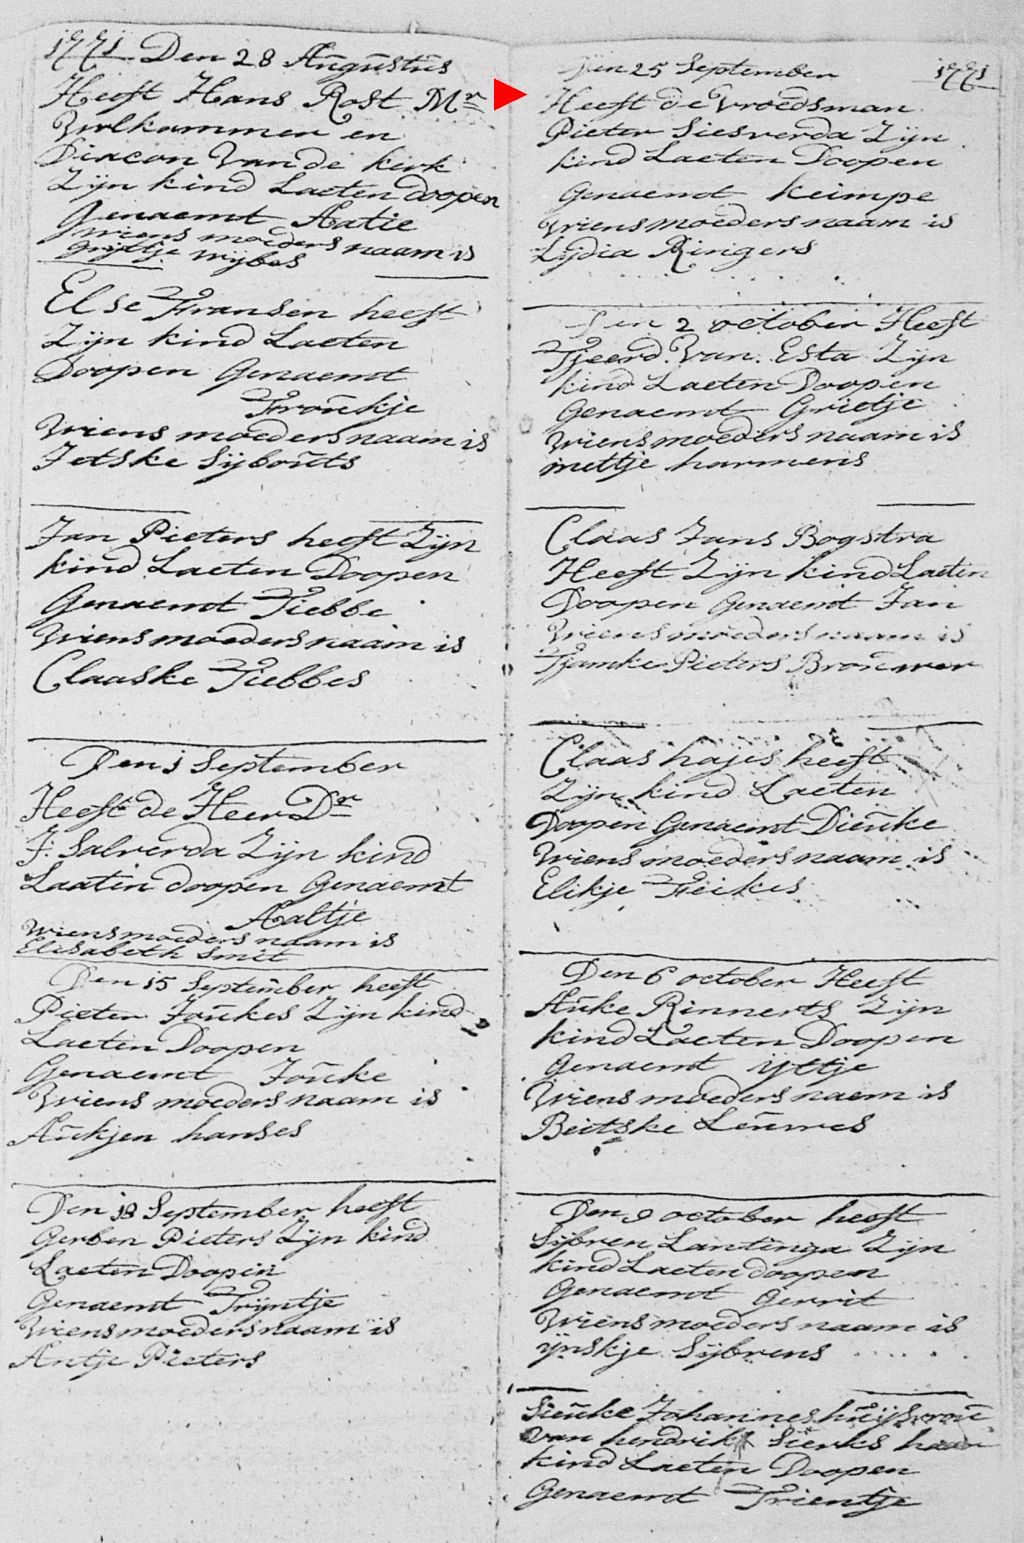 1771 Den 28 Augustus
Heeft Hans Rost Mr
Wolkammer en
Diacon Van de kerk
Zijn kind Laeten doopen
Genaemt Aatie
Wiens moeders naam is
Grijttje Wijbes
Else Fransen heeft
Zijn kind Laeten
Doopen Genaemt
Froukje
Wiens moeders naam is
Jetske Sijbouts
Jan Pieters heeft Zijn
kind Laeten Doopen
Genaemt Tiebbe
Wiens moeders naam is
Claaske Tiebbes
Den 1 September
Heeft de Heer Dr
J: Salverda Zijn kind
Laaten doopen Genaemt
Aaltje
Wiens moeders naam is
Elisabeth Smit
Den 15 September heeft
Pieter Joukes Zijn kind
Laeten Doopen
Genaemt Jouke
Wiens moeders naam is
Aukjen hanses
Den 18 September heeft
Gerben Pieters Zijn kind
Laeten Doopen
Genaemt Trijntje
Wiens moeders naam is
Antje Pieters
Den 25 September 1771
Heeft de Vroedsman
Pieter Siesverda Zijn
kind Laeten Doopen
Genaemt Keimpe
Wiens moeders naam is
Lydia Ringers
Den 2 october Heeft
Tjeerd Van Esta Zijn
kind Laeten Doopen
Genaemt Grietje
Wiens moeders naam is
mettje harmens
Claas Jans Bogstra
Heeft Zijn kind Laeten
Doopen Genaemt Jan
Wiens moeders naam is
Tjamke Pieters Brouwer
Claas hajes heeft
Zijn kind Laeten
Doopen Genaemt Dieuke
Wiens moeders naam is
Elikje Feikes
Den 6 october Heeft
Auke Rinnerts Zijn
kind Laeten Doopen
Genaemt ijttje
Wiens moeders naem is
Beitske Leuwes
Den 9 october heeft
Sijbren Lantinga Zijn
kind Laeten doopen
Genaemt Gerrit
Wiens moeders naam is
ijnskje Sijbrens
Sieuke Johannes huijsvrou
van hendrik Sierks haar
kind Laeten Doopen
Genaemt Trientje